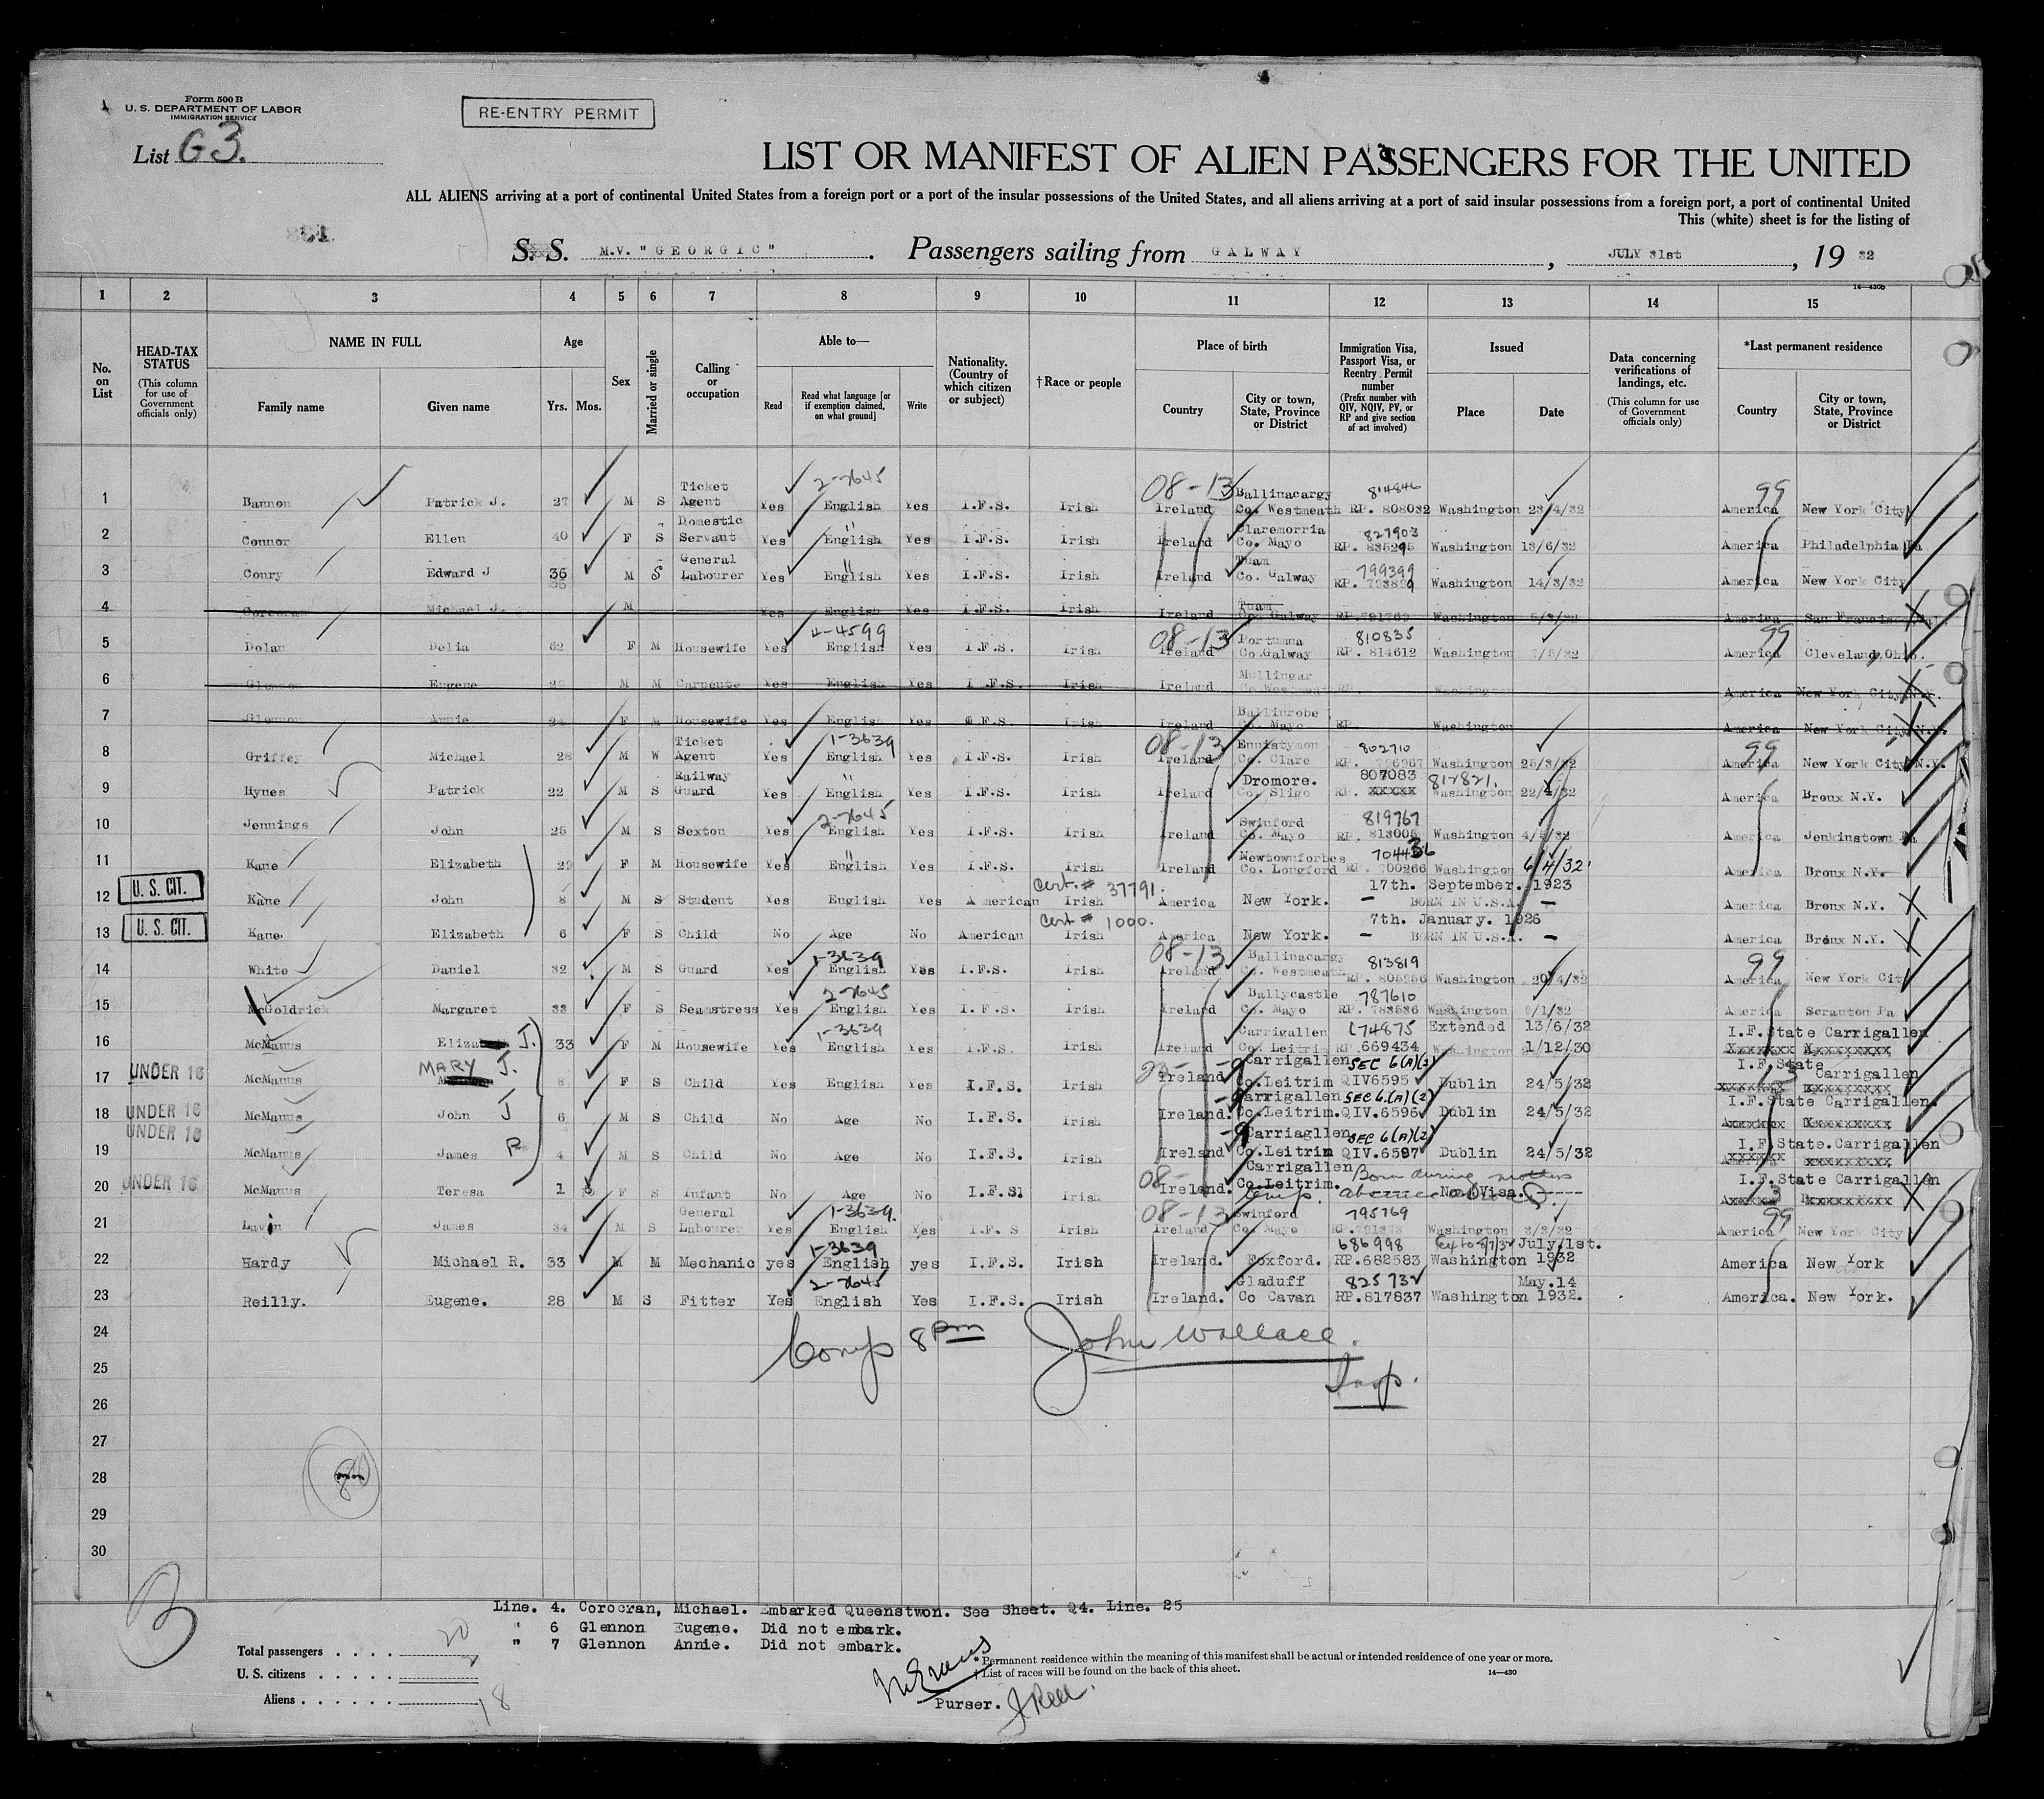 Form 500 B
U. S. DEPARTMENT OF LABOR
IMMIGRATION SERVICE
RE-ENTRY PERMIT
List G3.
LIST OR MANIFEST OF ALIEN PASSENGERS FOR THE UNITED
ALL ALIENS arriving at a port of continental United States from a foreign port or a port of the insular possessions of the United States, and all aliens arriving at a port of said insular possessions from a foreign port, a port of continental United
This (white) sheet is for the listing of
S. S. M.V. "GEORGIC" . Passengers sailing from GALWAY , JULY 31st , 19 32
14—430b
1 2 3 4 5 6 7 8 9 10 11 12 13 14 15
No. on List
HEAD-TAX STATUS (This column for use of Government officials only)
NAME IN FULL
Family name Given name
Age
Yrs. Mos.
Sex
Married or single
Calling or occupation
Able to—
Read Read what language [or if exemption claimed, on what ground] Write
Nationality. (Country of which citizen or subject)
†Race or people
Place of birth
Country City or town, State, Province or District
Immigration Visa, Passport Visa, or Reentry Permit number (Prefix number with QIV, NQIV, PV, or RP and give section of act involved)
Issued
Place Date
Data concerning verifications of landings, etc. (This column for use of Government officials only)
*Last permanent residence
Country City or town, State, Province or District
Ticket 2-7645 08-13 Ballinacargy 814846 99
1 Bannon Patrick J. 27 M S Agent Yes English Yes I.F.S. Irish Ireland Co. Westmeath RP. 808032 Washington 23/4/32 America New York City
Domestic " Claremorris 827903
2 Connor Ellen 40 F S Servant Yes English Yes I.F.S. Irish Ireland Co. Mayo RP. 835295 Washington 13/6/32 America Philadelphia Pa
General " Tuam 799399
3 Conry Edward J 36 M S Labourer Yes English Yes I.F.S. Irish Ireland Co. Galway RP. Washington 14/3/32 America New York City
4 Corcoran Michael J. M Yes English Yes I.F.S. Irish Ireland Tuam Co. Galway RP. Washington America San Francisco
4-4599 08-13 Portumna 810835 99
5 Dolan Delia 62 F M Housewife Yes English Yes I.F.S. Irish Ireland Co.Galway RP. 814612 Washington /5/32 America Cleveland, Ohio.
Mullingar
6 Glennon Eugene M M Carpente Yes English Yes I.F.S. Irish Ireland Co Westmeath RP. Washington America New York City N.Y.
Ballinrobe
7 Glennon Annie F M Housewife Yes English Yes I.F.S. Irish Ireland Co. Mayo RP. Washington America New York City N.Y.
Ticket 1-3639 08-13 Ennistymon 802710 99
8 Griffey Michael 28 M W Agent Yes English Yes I.F.S. Irish Ireland Co. Clare RP. Washington 25/3/32 America New York City N.Y.
Railway " Dromore. 807083 812821.
9 Hynes Patrick 22 M S Guard Yes English Yes I.F.S. Irish Ireland Co. Sligo RP. xxxxx Washington 22/4/32 America Bronx N.Y.
2-7645 Swinford 819767
10 Jennings John 25 M S Sexton Yes English Yes I.F.S. Irish Ireland Co. Mayo RP. 813005 Washington 4/5/32 America Jenkinstown Pa
" Newtownforbes 704436
11 Kane Elizabeth 29 F M Housewife Yes English Yes I.F.S. Irish Ireland Co. Longford RP. 700266 Washington 6/4/32 America Bronx N.Y.
U. S. CIT. Cert. # 37791. 17th. September. 1923
12 Kane John 8 M S Student Yes English Yes American Irish America New York. — BORN IN U.S.A. — America Bronx N.Y.
U. S. CIT. Cert # 1000. 7th. January. 1926
13 Kane. Elizabeth 6 F S Child No Age No American Irish America New York. — BORN IN U.S.A. — America Bronx N.Y.
1-3639 08-13 Ballinacargy 813819 99
14 White Daniel 32 M S Guard Yes English Yes I.F.S. Irish Ireland Co. Westmeath RP. Washington 20/4/32 America New York City
2-7645 Ballycastle 787610
15 McGoldrick Margaret 33 F S Seamstress Yes English Yes I.F.S. Irish Ireland Co. Mayo RP. 783536 Washington /1/32 America Scranton Pa
1-3639 Carrigallen 674875 Extended 13/6/32 I.F.State Carrigallen
16 McManus Eliza J. 33 F M Housewife Yes English Yes I.F.S. Irish Ireland Co. Leitrim RP.669434 Washington 1/12/30 xxxxxxx xxxxxxxxx
UNDER 16 MARY J. Carrigallen SEC 6(A)(2) I.F.State Carrigallen
17 McManus 8 F S Child Yes English Yes I.F.S. Irish Ireland Co.Leitrim QIV6595 Dublin 24/5/32 xxxxxxx xxxxxxxxx
UNDER 16 Carrigallen SEC 6.(A)(2) I.F.State Carrigallen.
18 McManus John J 6 M S Child No Age No I.F.S. Irish Ireland. Co.Leitrim. QIV.6596 Dublin 24/5/32
UNDER 16 Carriagllen SEC 6(A)(2) I.F.State.Carrigallen
19 McManus James P. 4 M S Child No Age No I.F.S. Irish Ireland Co.Leitrim QIV.6597 Dublin 24/5/32
UNDER 16 08- Carrigallen Born during mothers I.F.State Carrigallen
20 McManus Teresa 1 F S Infant No Age No I.F.S. Irish Ireland. Co.Leitrim. temp. absence No Visa.
General 1-3639. 08-13 Swinford 795769 99
21 Lavin James 34 M S Labourer Yes English Yes I.F.S Irish Ireland Co. Mayo RP. Washington 3/3/32 America New York City
1-3639 686998 July.1st.
22 Hardy Michael R. 33 M M Mechanic yes English yes I.F.S. Irish Ireland. Foxford. RP.682583 Washington 1932 America New York
2-7645 Gladuff 825732 May.14
23 Reilly. Eugene. 28 M S Fitter Yes English Yes I.F.S. Irish Ireland. Co Cavan RP.817837 Washington 1932. America. New York.
24 Comp 8 pm John Wallace.
25 Insp.
26
27
28
29
30
B
Line. 4. Corocran, Michael. Embarked Queenstwon. See Sheet. Q4. Line. 25
" 6 Glennon Eugene. Did not embark.
" 7 Glennon Annie. Did not embark.
Total passengers . . . . 20
U. S. citizens . . . . . 2
Aliens . . . . . . 18
* Permanent residence within the meaning of this manifest shall be actual or intended residence of one year or more.
† List of races will be found on the back of this sheet.
14—430
Purser.